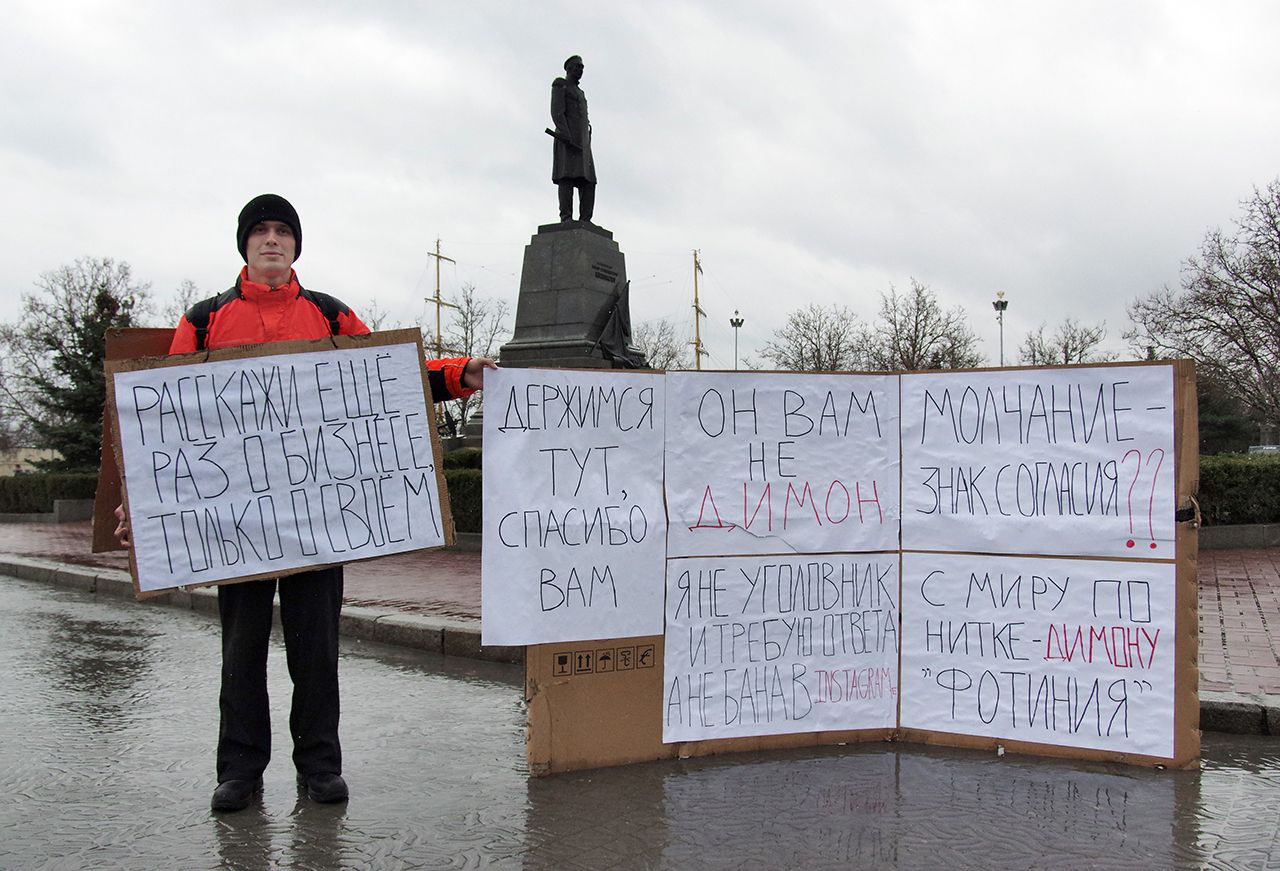 РАССКАЖИ ЕЩЁ
РАЗ О БИЗНЕСЕ,
ТОЛЬКО О СВОЁМ
ДЕРЖИМСЯ
ТУТ,
СПАСИБО
ВАМ
ОН ВАМ
НЕ
ДИМОН
МОЛЧАНИЕ -
ЗНАК СОГЛАСИЯ??
Я НЕ УГОЛОВНИК
И ТРЕБУЮ ОТВЕТА
А НЕ БАНА В INSTAGRAM
С МИРУ ПО
НИТКЕ - ДИМОНУ
"ФОТИНИЯ"